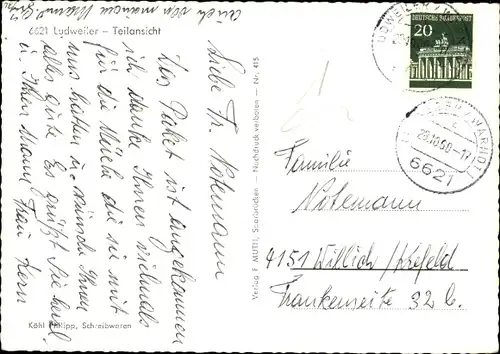 auch von meinem Mann
6621 Ludweiler – Teilansicht
Liebe Fr. Notemann
Das Paket ist angekommen
ich danke Ihnen vielmals
für die Mühe die sie mit
uns hatten u. wünsche Ihnen
alles gute. Es grüßt Sie
u. Ihren Mann Frau Kern
Köhl Philipp, Schreibwaren
Verlag F. MUTH, Saarbrücken – Nachdruck verboten – Nr. 415
DEUTSCHE BUNDESPOST
20
28.10.68-17
6621
Familie
Notemann
4151 Willich / Krefeld
Frankenseite 32 b.